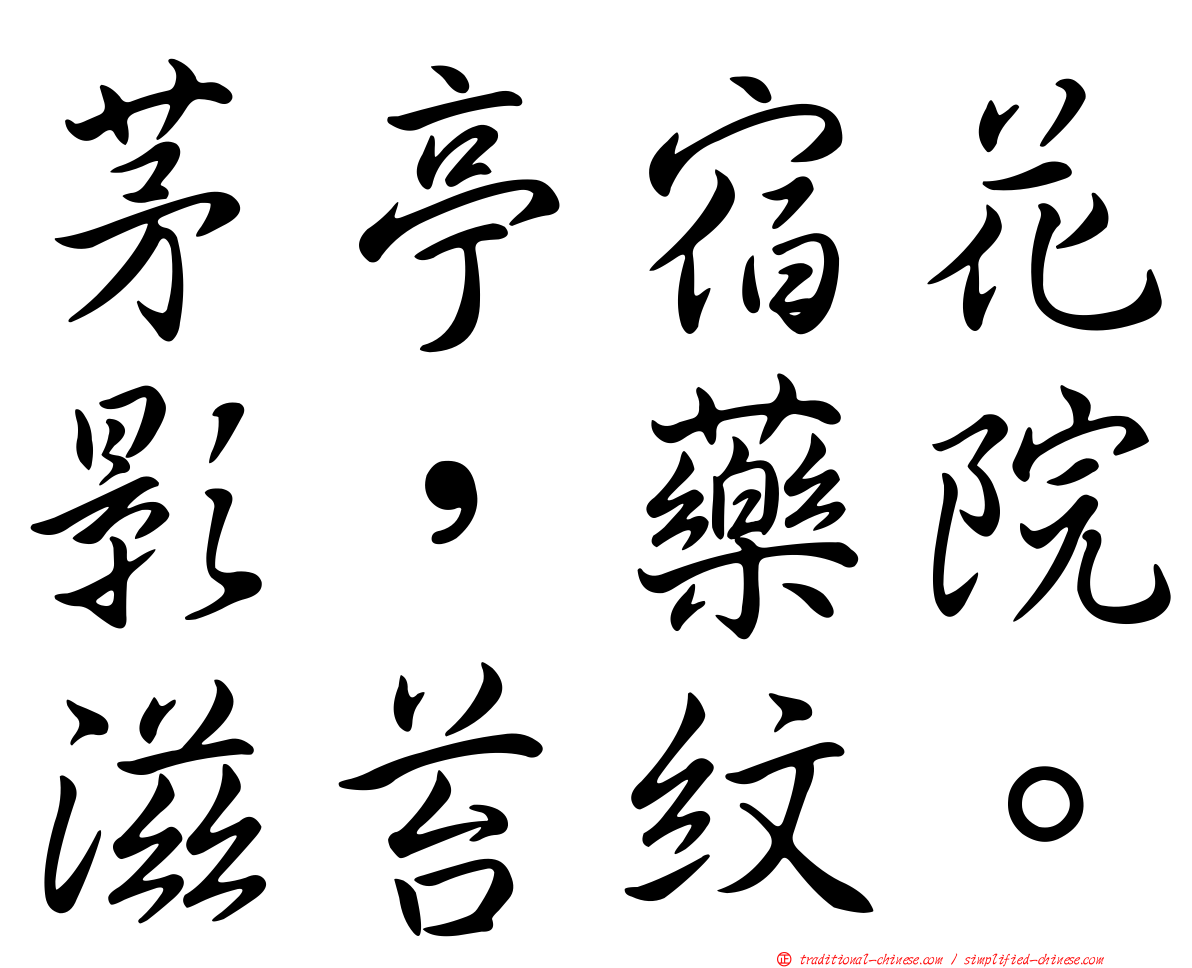 茅亭宿花
影，藥院
滋苔紋。
正 traditional-chinese.com / simplified-chinese.com